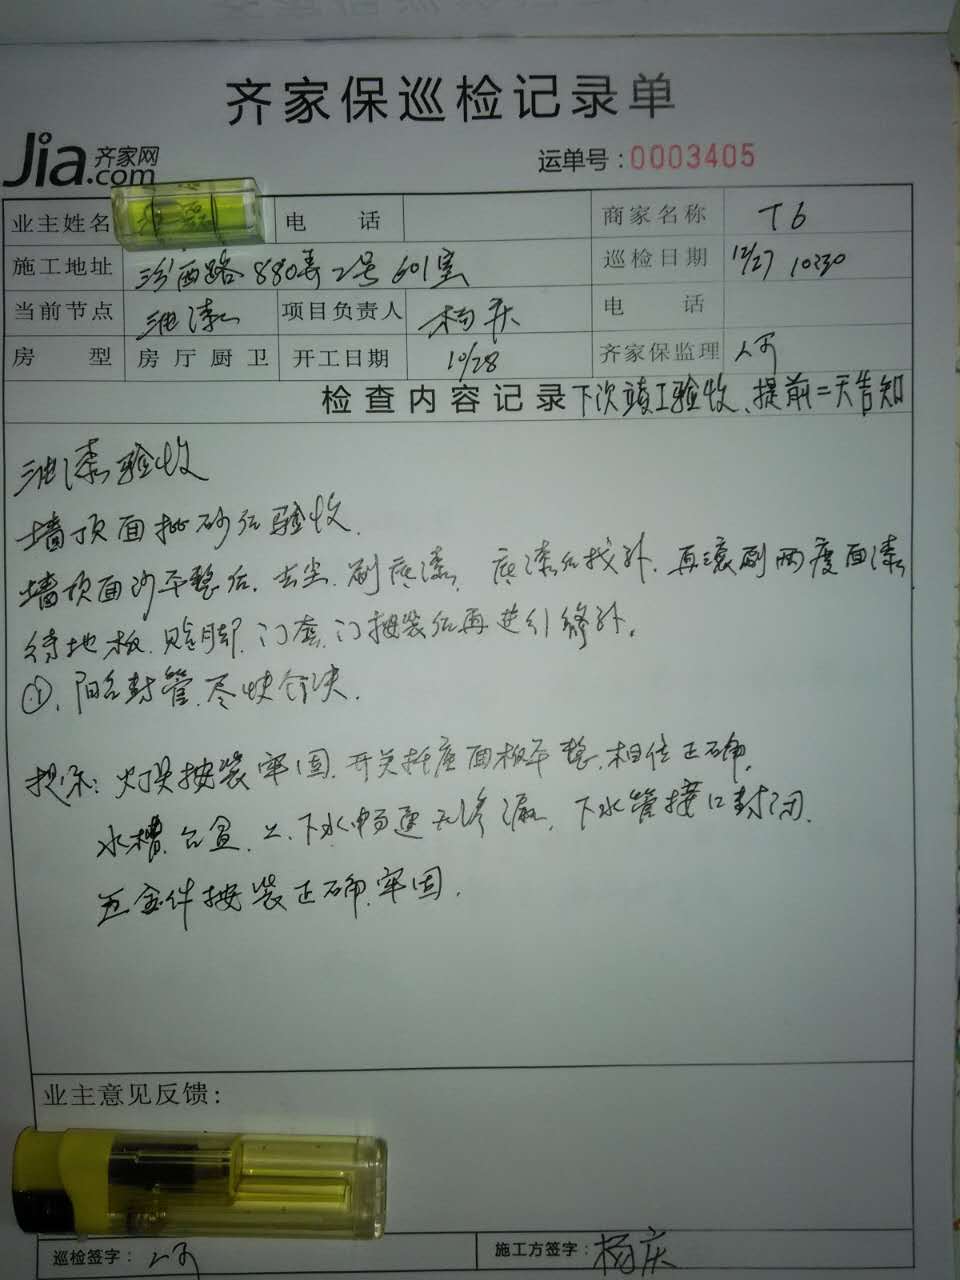 齐家保巡检记录单
Jia.com 齐家网
运单号:0003405
业主姓名 电话 商家名称 T6
施工地址 汾西路880弄2号601室 巡检日期 12/27 10:30
当前节点 油漆 项目负责人 杨庆 电话
房型 房厅厨卫 开工日期 10/28 齐家保监理
检查内容记录 下次竣工验收、提前二天告知
油漆验收
墙顶面批砂后验收.
墙顶面砂平整后.去尘.刷底漆.底漆后找补.再滚刷两度面漆
待地板.贴脚.门套.门按装后再进行修补.
①.阳台封管.尽快解决.
提示:灯具按装牢固.开关托座面板平整.相位正确.
水槽.台盆.上.下水畅通无渗漏.下水管接口封闭.
五金件按装正确.牢固.
业主意见反馈:
巡检签字:
施工方签字: 杨庆